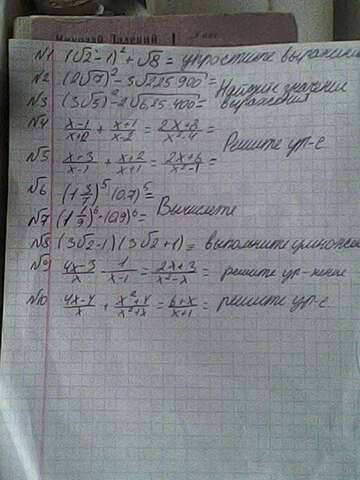 Николай
№1 (√2-1)²+√8= упростите выражение
№2 (2√7)²-3√225 900=
Найдите значение
№3 (3√5)²-2√625 400= выражения
№4 x-1/x+2 + x+1/x-2 = 2x+8/x²-4 =
Решите ур-е
№5 x+3/x-1 + x+2/x+1 = 2x+6/x²-1 =
№6 (1 3/7)⁵·(0,7)⁵
Вычислете
№7 (1 1/9)⁶·(0,9)⁶=
№8 (3√2-1)(3√2+1)= выполните умножение
№9 4x-3/x - 1/x-1 = 2x+3/x²-x = решите ур-нение
№10 4x-4/x + x²+4/x²+x = 6+x/x+1 = решите ур-е